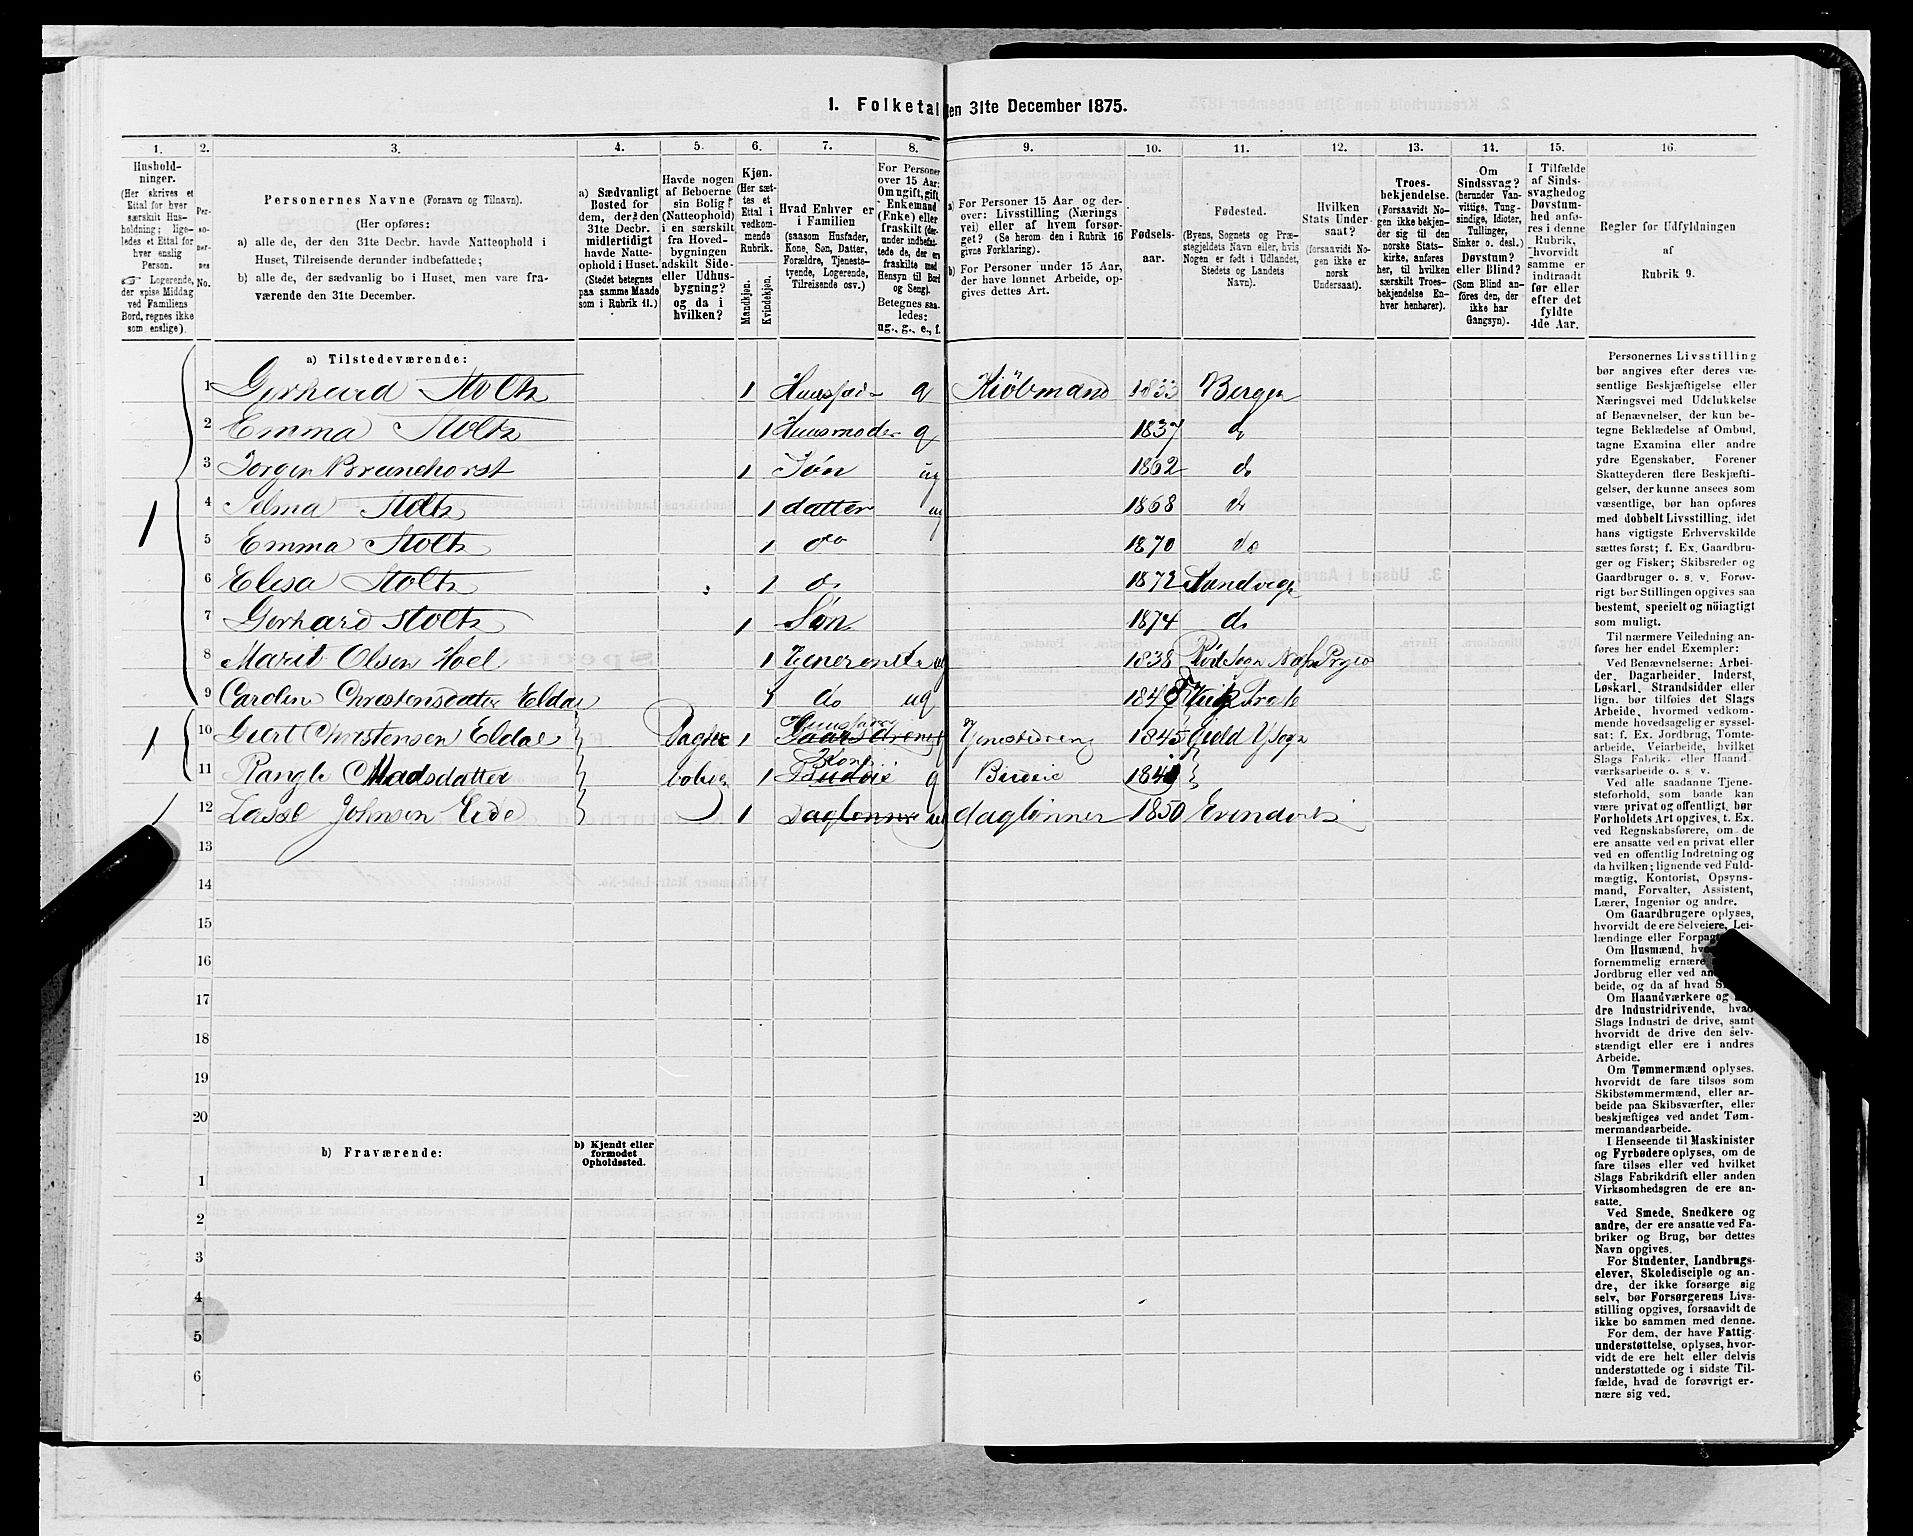 1. Folketal den 31te December 1875.
1. 2. 3. 4. 5. 6. 7. 8. 9. 10. 11. 12. 13. 14. 15. 16.
Hushold-
ninger.
(Her skrives et
Ettal for hver
særskilt Hus-
holdning; lige-
ledes et Ettal for
hver enslig
Person.
Logerende,
der spise Middag
ved Familiens
Bord, regnes ikke
som enslige).
Per-
so-
ner-
nes
No.
Personernes Navne (Fornavn og Tilnavn).
(Her opføres:
a) alle de, der den 31te Decbr. havde Natteophold i
Huset, Tilreisende derunder indbefattede;
b) alle de, der sædvanlig bo i Huset, men vare fra-
værende den 31te December.
a) Sædvanligt
Bosted for
dem, der den
31te Decbr.
midlertidigt
havde Natte-
ophold i Huset.
(Stedet betegnes
paa samme Maade
som i Rubrik 11.)
Havde nogen
af Beboerne
sin Bolig
(Natteophold)
i en særskilt
fra Hoved-
bygningen
adskilt Side-
eller Udhus-
bygning?
og da i
hvilken?
Kjøn.
(Her sæt-
tes et
Ettal i
vedkom-
mende
Rubrik.
Mandkjøn.
Kvindekjøn.
Hvad Enhver er
i Familien
(saasom Husfader,
Kone, Søn, Datter,
Forældre, Tjeneste-
tyende, Logerende,
Tilreisende osv.)
For Personer
over 15 Aar:
Om ugift, gift,
Enkemand
(Enke) eller
fraskilt (der-
under indbefat-
tede de, der ere
fraskilte med
Hensyn til Bord
og Seng).
Betegnes saa-
ledes:
ug., g., e., f.
a) For Personer 15 Aar og der-
over: Livsstilling (Nærings-
vei) eller af hvem forsør-
get? (Se herom den i Rubrik 16
givne Forklaring).
b) For Personer under 15 Aar,
der have lønnet Arbeide, op-
gives dettes Art.
Fødsels-
aar.
Fødested.
(Byens, Sognets og Præ-
stegjeldets Navn eller, hvis
Nogen er født i Udlandet,
Stedets og Landets
Navn).
Hvilken
Stats Under-
saat?
(forsaavidt No-
gen ikke er
norsk
Undersaat).
Troes-
bekjendelse.
(Forsaavidt No-
gen ikke bekjen-
der sig til den
norske Stats-
kirke, anføres
her, til hvilken
særskilt Troes-
bekjendelse En-
hver henhører).
Om
Sindssvag?
(herunder Van-
vittige, Tung-
sindige, Idioter,
Tullinger,
Sinker o. desl.)
Døvstum?
eller Blind?
(Som Blind an-
føres den, der
ikke har
Gangsyn).
I Tilfælde
af Sinds-
svaghed og
Døvstum-
hed anfø-
res i denne
Rubrik,
hvorvidt
samme er
indtraadt
før eller
efter det
fyldte
4de Aar.
Regler for Udfyldningen
af
Rubrik 9.
a) Tilstedeværende:
1 Gerhard Stoltz 1 Huusfader g Kiöbmand 1833 Bergen
2 Emma Stoltz 1 Huusmoder g 1837 do
3 Jörgen Brunchorst 1 Søn ug 1862 do
1 4 Selma Stoltz 1 datter ug 1868 do
5 Emma Stoltz 1 do 1870 do
6 Elisa Stoltz 1 do 1872 Sandvigen
7 Gerhard Stoltz 1 Søn 1874 do
8 Marit Olsen Hoel 1 ug 1838
9 Carolin Christensdatter Eldal 1 do ug
1 10 Christensen Eldal 1 Huusfader g Tjenestedreng 1845
11 Madsdatter 1 Kone g
1 12 Johnsen Eide 1 Daglønner ug daglønner 1850 Evindvik
13
14
15
16
17
18
19
20
b) Fraværende: b) Kjendt eller
formodet
Opholdssted.
1
2
3
4
5
6
Personernes Livsstilling
bør angives efter deres væ-
sentlige Beskjæftigelse eller
Næringsvei med Udelukkelse
af Benævnelser, der kun be-
tegne Beklædelse af Ombud,
tagne Examina eller andre
ydre Egenskaber. Forener
Skatteyderen flere Beskjæfti-
gelser, der kunne ansees som
væsentlige, bør han opføres
med dobbelt Livsstilling, idet
hans vigtigste Erhvervskilde
sættes først; f. Ex. Gaardbru-
ger og Fisker; Skibsreder og
Gaardbruger o. s. v. Forøv-
rigt bør Stillingen opgives saa
bestemt, specielt og nöiagtigt
som muligt.
Til nærmere Veiledning an-
føres her endel Exempler:
Ved Benævnelserne: Arbei-
der, Dagarbeider, Inderst,
Løskarl, Strandsidder eller
lign. bør tilføies det Slags
Arbeide, hvormed vedkom-
mende hovedsagelig er syssel-
sat; f. Ex. Jordbrug, Tomte-
arbeide, Veiarbeide, hvilket
Slags Fabrik- eller Haand-
værksarbeide o. s. v.
Ved alle saadanne Tjene-
steforhold, som baade kan
være privat og offentligt, bør
Forholdets Art opgives, t. Ex.
ved Regnskabsførere, om de
ere ansatte ved en privat eller
ved en offentlig Indretning og
da hvilken; lignende ved Fuld-
mægtig, Kontorist, Opsyns-
mand, Forvalter, Assistent,
Lærer, Ingeniør og andre.
Om Gaardbrugere oplyses,
hvorvidt de ere Selveiere, Lei-
lændinge eller
Om Husmænd,
fornemmelig ernære
Jordbrug eller ved
beide, og da af hvad
Om Haandværkere og
dre Industridrivende, hvad
Slags Industri de drive, samt
hvorvidt de drive den selv-
stændigt eller ere i andres
Arbeide.
Om Tømmermænd oplyses,
hvorvidt de fare tilsøs som
Skibstømmermænd, eller ar-
beide paa Skibsværfter, eller
beskjæftiges ved andet Tøm-
mermandsarbeide.
I Henseende til Maskinister
og Fyrbødere oplyses, om de
fare tilsøs eller ved hvilket
Slags Fabrikdrift eller anden
Virksomhedsgren de ere an-
satte.
Ved Smede, Snedkere og
andre, der ere ansatte ved Fa-
briker og Brug, bør dettes
Navn opgives.
For Studenter, Landbrugs-
elever, Skoledisciple og an-
dre, der ikke forsørge sig
selv, bør Forsørgerens Livs-
stilling opgives, forsaavidt de
ikke bo sammen med denne.
For dem, der have Fattig-
understøttelse, oplyses, hvor-
vidt de ere helt eller delvis
understøttede og i sidste Til-
fælde, hvad de forøvrigt er-
nære sig ved.